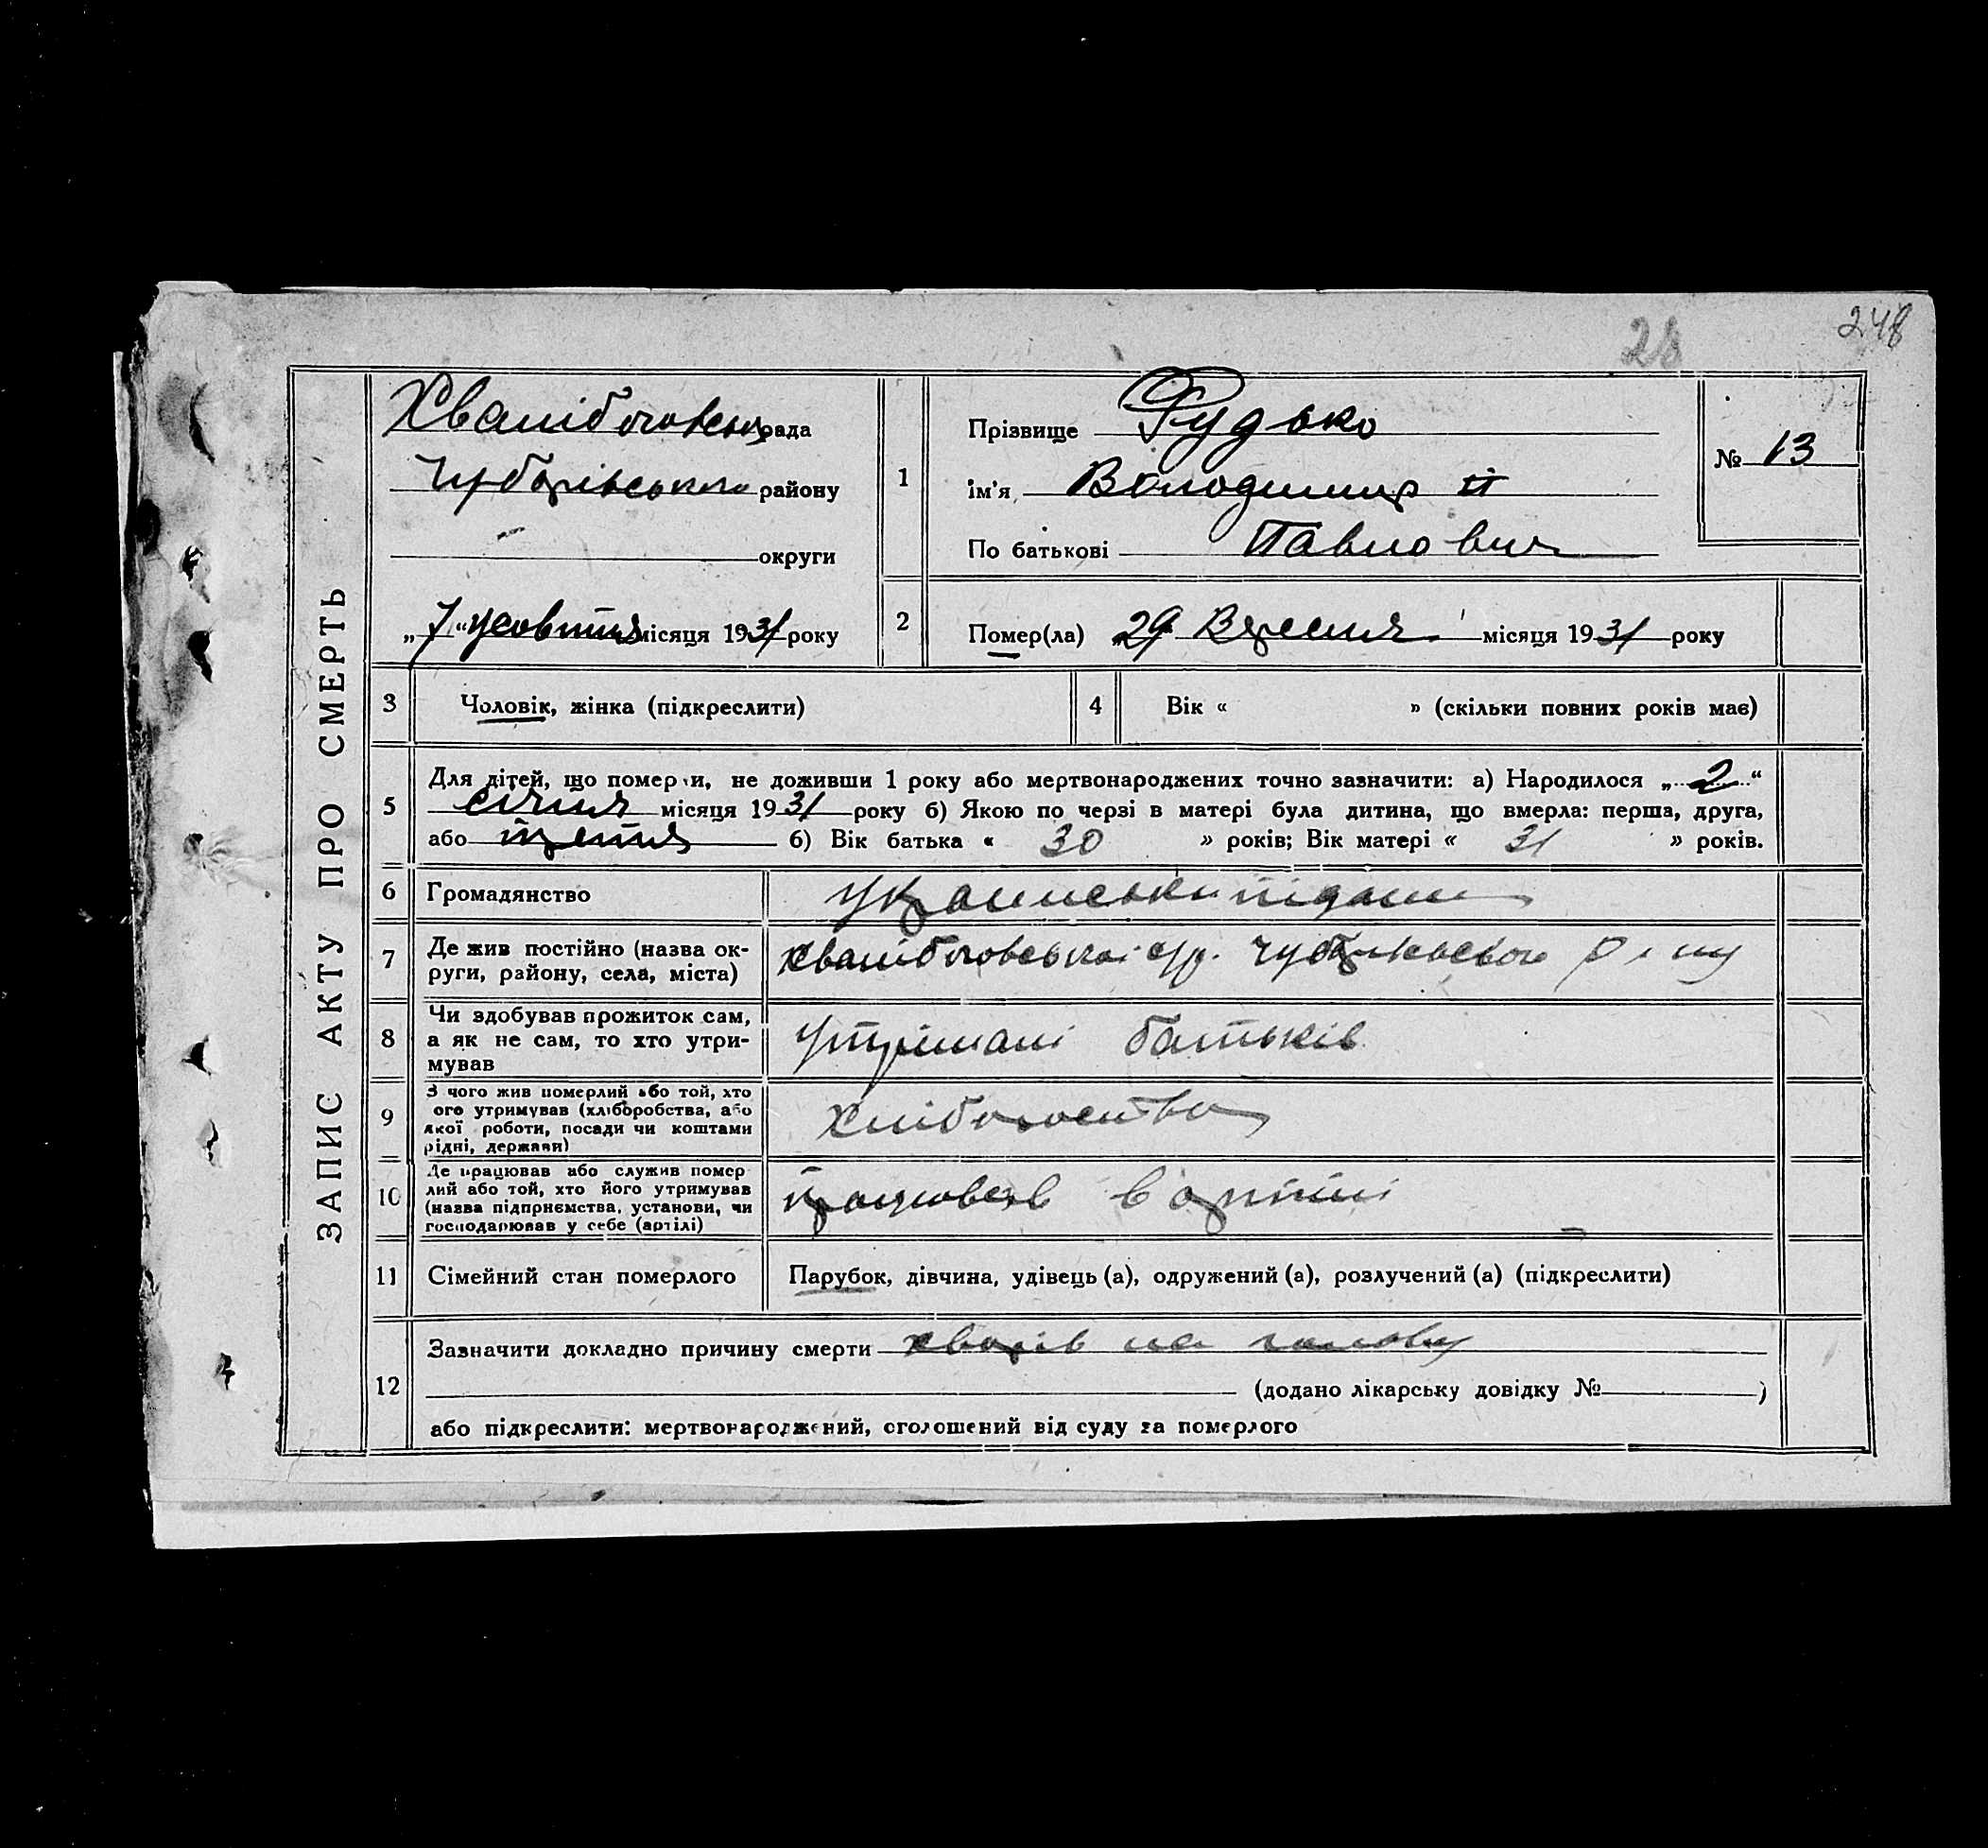 248
28
ЗАПИС АКТУ ПРО СМЕРТЬ
рада
Чубарівського району
округи
„7“ жовтня місяця 1931 року
1
Прізвище Рудько
ім'я Володимир
По батькові Павлович
№ 13
2
Помер(ла) 29 Вересня місяця 1931 року
3
Чоловік, жінка (підкреслити)
4
Вік « » (скільки повних років має)
5
Для дітей, що померли, не доживши 1 року або мертвонароджених точно зазначити: а) Народилося „2“
січня місяця 1931 року б) Якою по черзі в матері була дитина, що вмерла: перша, друга,
або третя б) Вік батька « 30 » років; Вік матері « 31 » років.
6
Громадянство
7
Де жив постійно (назва ок-
руги, району, села, міста)
с/р.
8
Чи здобував прожиток сам,
а як не сам, то хто утри-
мував
батьків
9
З чого жив померлий або той, хто
ого утримував (хліборобства, або
якої роботи, посади чи коштами
рідні, держави)
10
Де працював або служив помер
лий або той, хто його утримував
(назва підприємства, установи, чи
господарював у себе (артілі)
в артілі
11
Сімейний стан померлого
Парубок, дівчина, удівець (а), одружений (а), розлучений (а) (підкреслити)
12
Зазначити докладно причину смерти хворів на голову
(додано лікарську довідку № )
або підкреслити: мертвонароджений, оголошений від суду за померлого